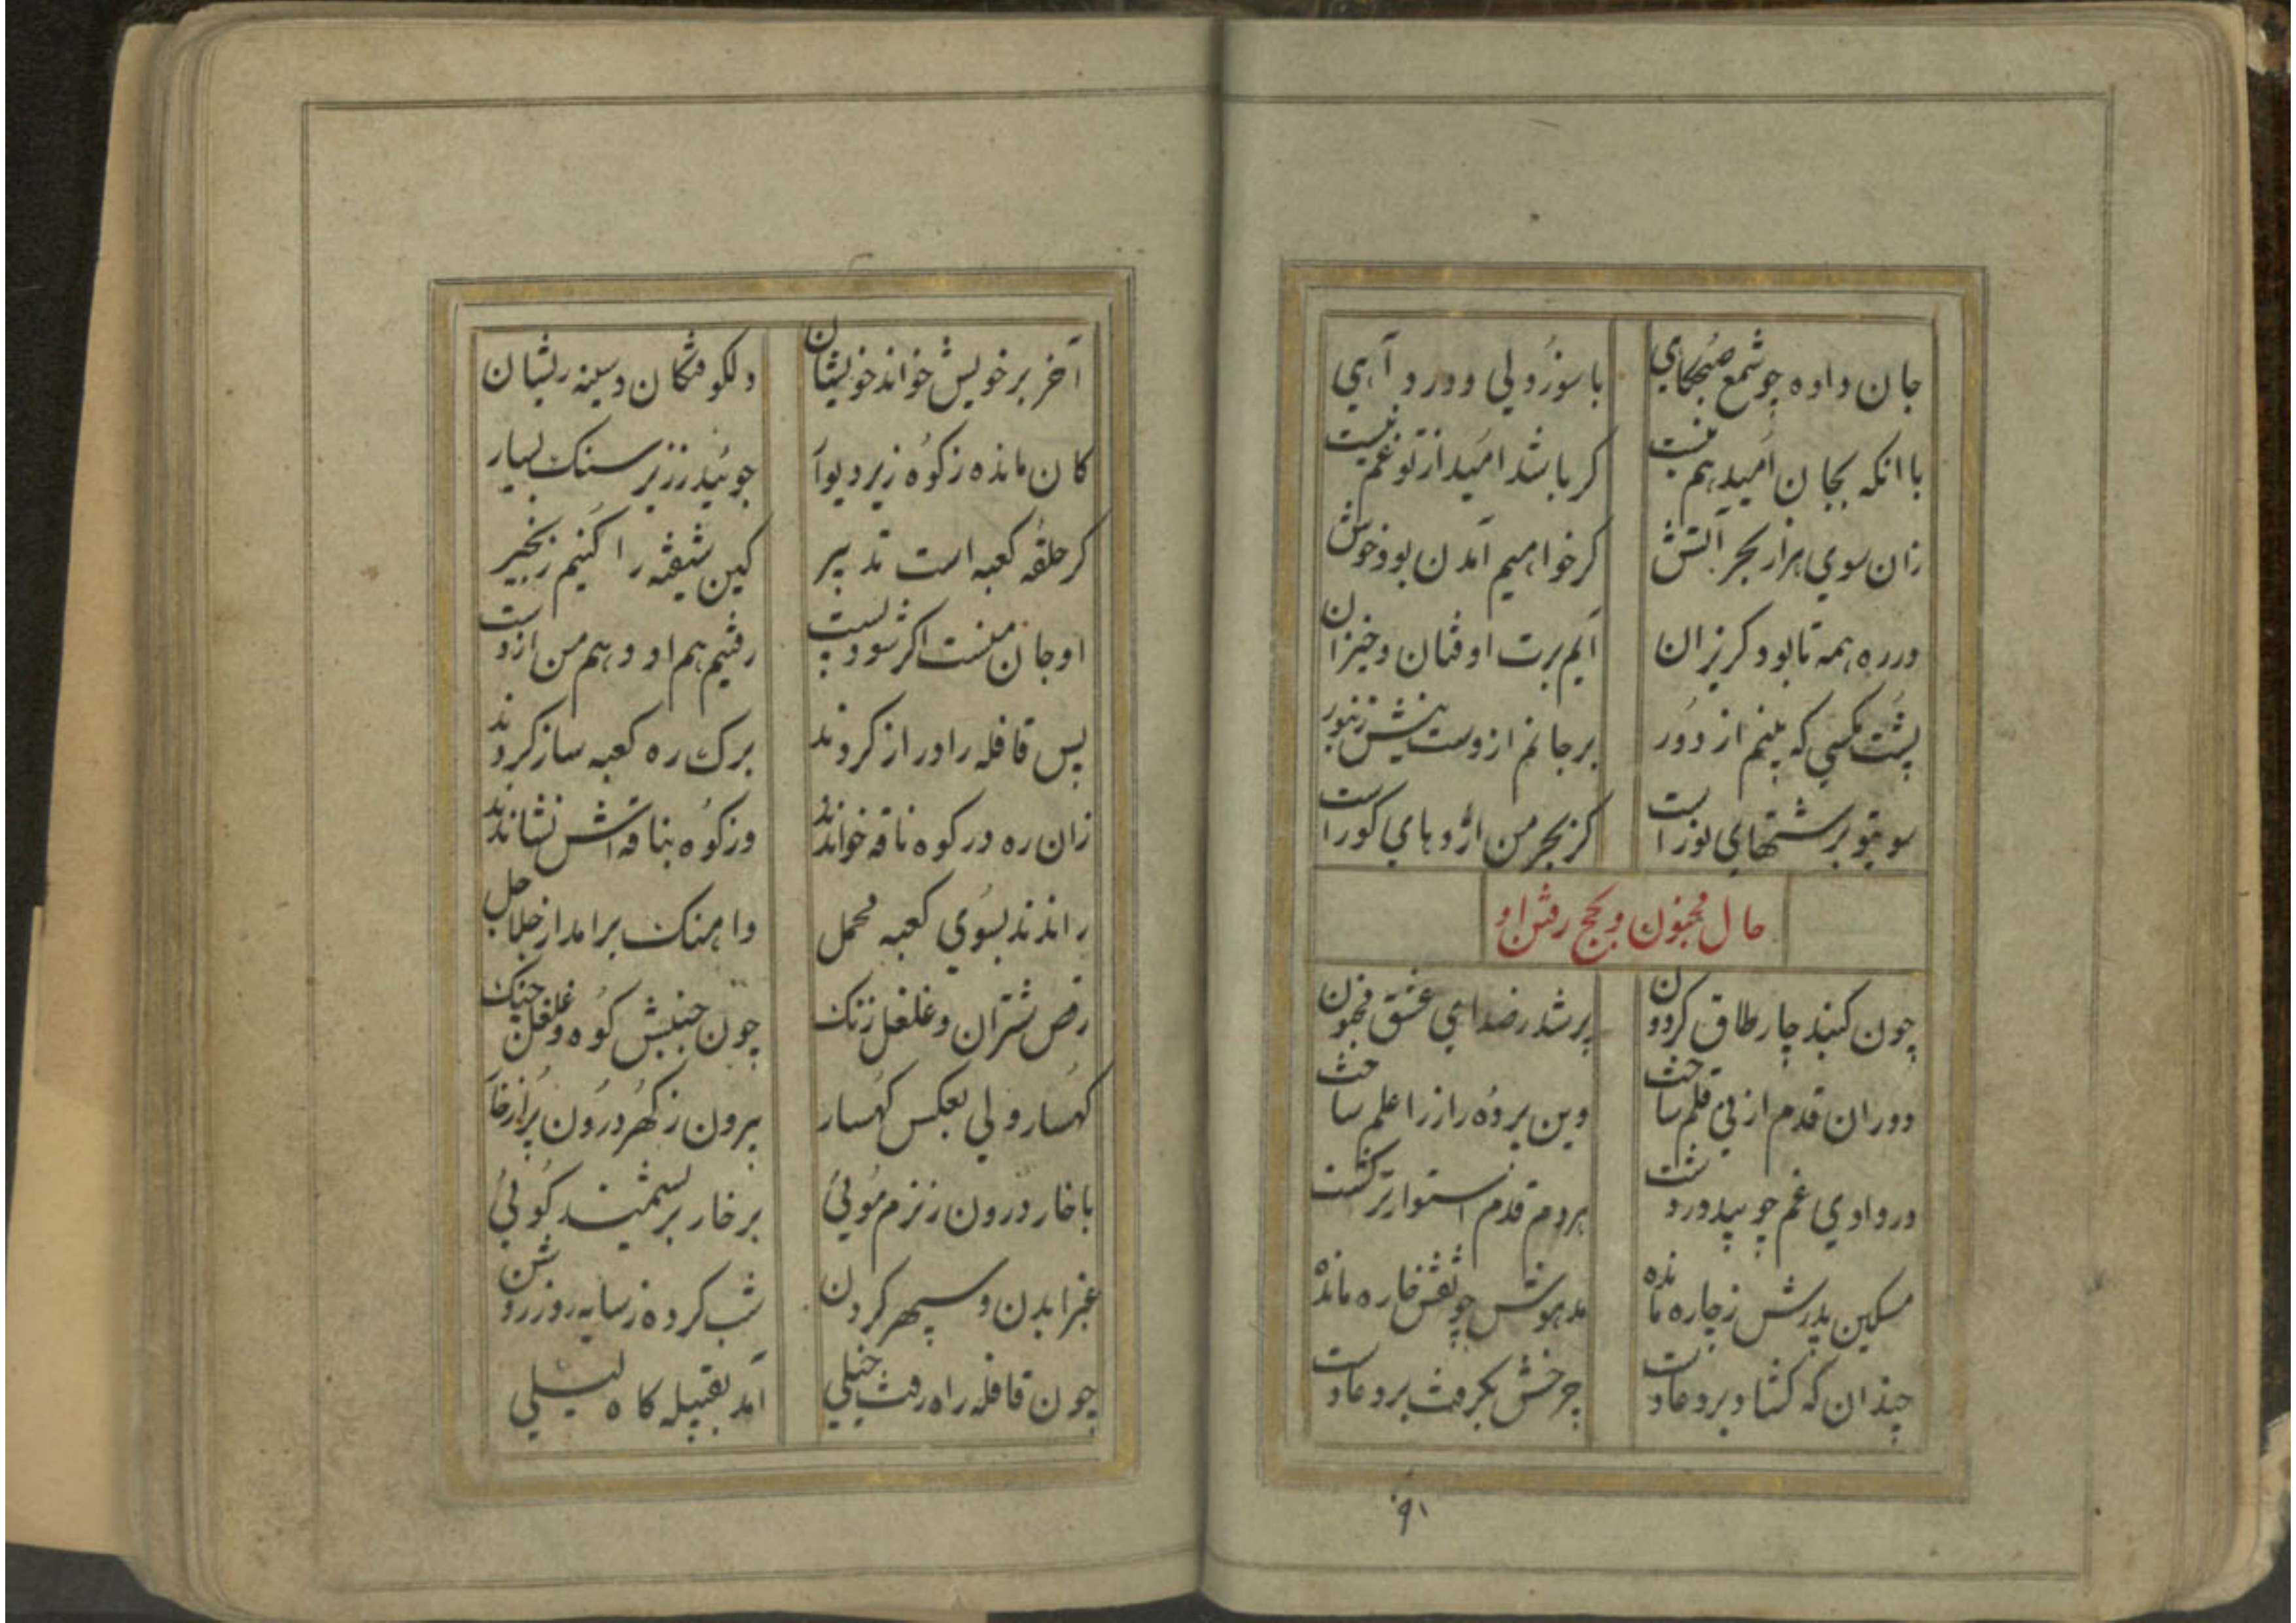 جان داده چو شمع صبحکاهی با سوز دلی و درد و آهی
با انکه بجان امید هم نیست کر باشد امید از تو غم نیست
زان سوی هزار بحر آتش کر خواهیم آمدن بود خوش
در ره همه تا بود کریزان آیم برت اوفتان و خیزان
پشت مکسی که بینم از دور بر جانم ازوست نیش زنبور
سو بتو بر شتهای نور است کز بحر من اژدهای کور است
حال مجنون و بحج رفتن او
چون کنبد چار طاق کردون پر شد ز صدای عشق مجنون
دوران قدم از پی قلم ساخت وین پرده راز را علم ساخت
در وادی غم چو بید در دشت هر دم قدم استوارتر کشت
مسکین پدرش ز چاره مانده مدهوش چو نقش خاره مانده
چندان که کشاد بر دعا دست چرخش بکرفت بر دعا دست
۹۱
آخر بر خویش خواند خویشان دلکوفتکان و سینه ریشان
کان مانده ز کوه زیر دیوار جوئید ز زیر سنک بسیار
کر حلقه کعبه است تدبیر کین شیفته را کنیم زنجیر
او جان منست اکر شود پست رفتیم هم او و هم من از دست
پس قافله را دراز کردند برک ره کعبه ساز کردند
زان ره در کوه ناقه خواندند وز کوه بناقه اش نشاندند
راندند بسوی کعبه محمل واهنک برامد از جلاجل
رقص شتران و غلغل زنک چون جنبش کوه و غلغل جنک
کهسار ولی بعکس کهسار بیرون ز کهر درون پر از خار
با خار درون ز نزم موئی بر خار بر سمیند کوئی
غبرا بدن و سپهر کردن شب کرده ز سایه روز روشن
چون قافله راه رفت خیلی آمد بقبیله کاه لیلی